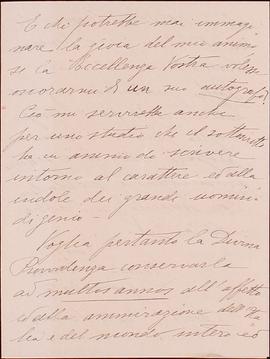 E chi potrebbe mai immagi
nare la gioia del mio animo
se la Eccellenza Vostra volesse
onorarmi di un suo autografo?
Ciò mi servirebbe anche
per uno studio che il sottoscritto
ha in animo di scrivere
intorno al carattere ed alla
indole dei grandi uomini
di genio –
Voglia pertanto la Divina
Provvidenza conservarla
ad multos annos all'affetto
ed alla ammirazione dell'Ita
lia e del mondo intero ed